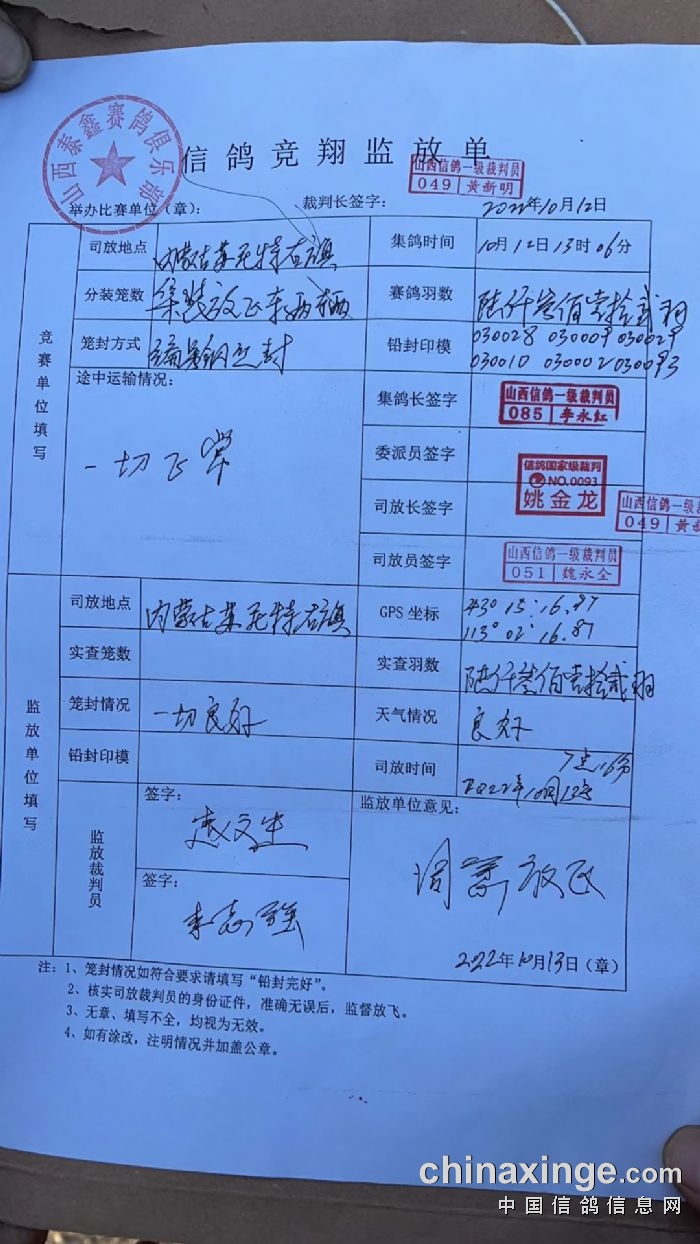 信鸽竞翔监放单
山西泰鑫赛鸽俱乐部
山西信鸽一级裁判员
049 黄新明
举办比赛单位（章）： 裁判长签字： 2022年10月12日
竞赛单位填写
司放地点 内蒙古苏尼特右旗 集鸽时间 10月12日13时06分
分装笼数 集装放飞车两辆 赛鸽羽数 陆仟叁佰壹拾贰羽
笼封方式 铅封 铅封印模 030028 030009 030029
030010 030002 030093
途中运输情况： 一切正常
集鸽长签字 山西信鸽一级裁判员
085 李永红
委派员签字 信鸽国家级裁判
NO.0093
姚金龙
司放长签字 山西信鸽一级裁
049 黄
司放员签字 山西信鸽一级裁判员
051 魏永全
监放单位填写
司放地点 内蒙古苏尼特右旗 GPS 坐标 43° 15′ 16.87
113° 02′ 16.87
实查笼数 实查羽数 陆仟叁佰壹拾贰羽
笼封情况 一切良好 天气情况 良好
铅封印模 司放时间 7点16分
2022年10月13日
监放裁判员
签字： 监放单位意见：
同意放飞
签字： 李志强
2022年10月13日（章）
注：1、笼封情况如符合要求请填写“铅封完好”。
2、核实司放裁判员的身份证件，准确无误后，监督放飞。
3、无章、填写不全，均视为无效。
4、如有涂改，注明情况并加盖公章。
chinaxinge.com
中国信鸽信息网